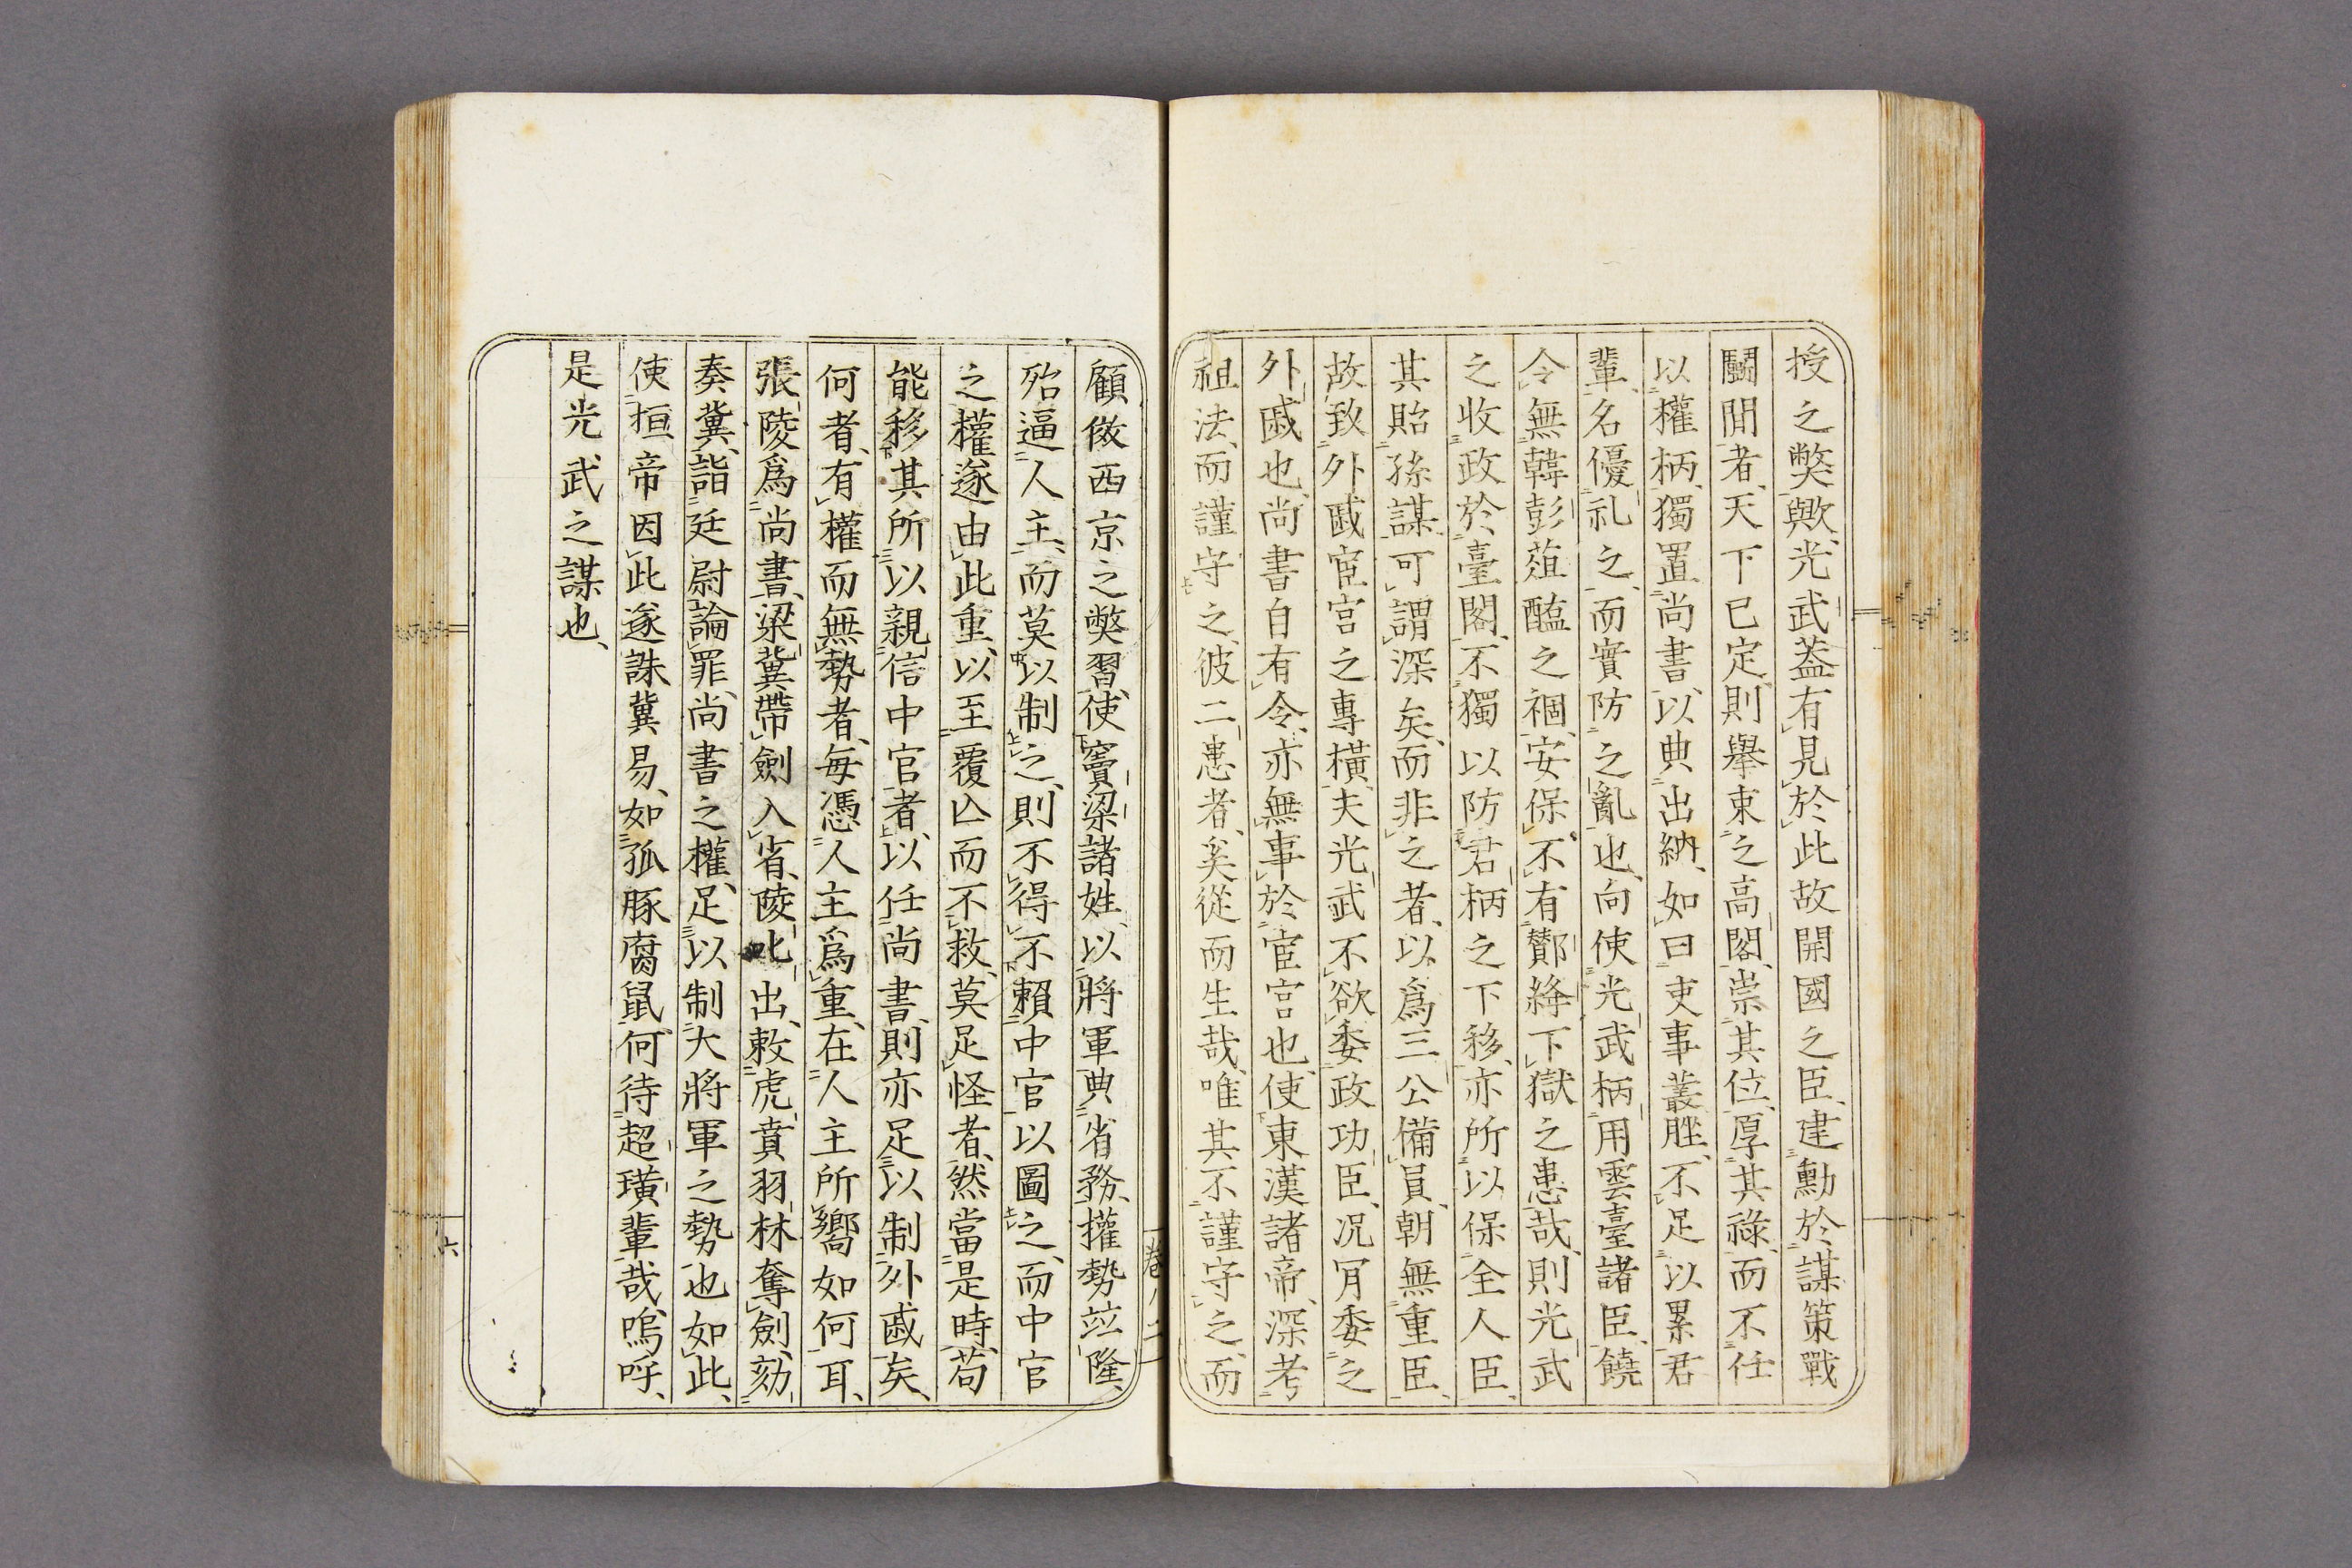 授之獘歟、光武葢有見於此故開國之臣、建勳於謀策戰
鬭間者、天下已定、則擧束之高閣、崇其位、厚其祿、而不任
以權柄、獨置尚書、以典出納、如曰吏事叢脞、不足以累君
輩、名優礼之、而實防之亂也、向使光武柄用雲臺諸臣、饒
令無韓彭葅醢之禍、安保不有酇絳下獄之患哉、則光武
之收政於臺閣、不獨以防君柄之下移、亦所以保全人臣、
其貽孫謀、可謂深矣、而非之者、以爲三公備員、朝無重臣、
故致外戚宦官之專横、夫光武不欲委政功臣、况肎委之
外戚也、尚書自有令、亦無事於宦官也、使東漢諸帝、深考
祖法、而謹守之、彼二患者、奚從而生哉、唯其不謹守之、而
顧倣西京之獘習、使竇梁諸姓、以將軍典省務、權勢竝隆、
殆逼人主、而莫以制之、則不得不賴中官以圖之、而中官
之權遂由此重、以至覆亾而不救、莫足怪者、然當是時、苟
能移其所以親信中官者、以任尚書、則亦足以制外戚矣、
何者、有權而無勢者、每憑人主爲重、在人主所嚮如何耳、
張陵爲尚書、梁冀帶劍入省、陵叱出、敕虎賁羽林奪劍、劾
奏冀、詣廷尉論罪、尚書之權、足以制大將軍之勢也如此、
使桓帝因此遂誅冀易、如孤豚腐鼠、何待超璜輩哉、嗚呼、
是光武之謀也、
卷ノ二
六